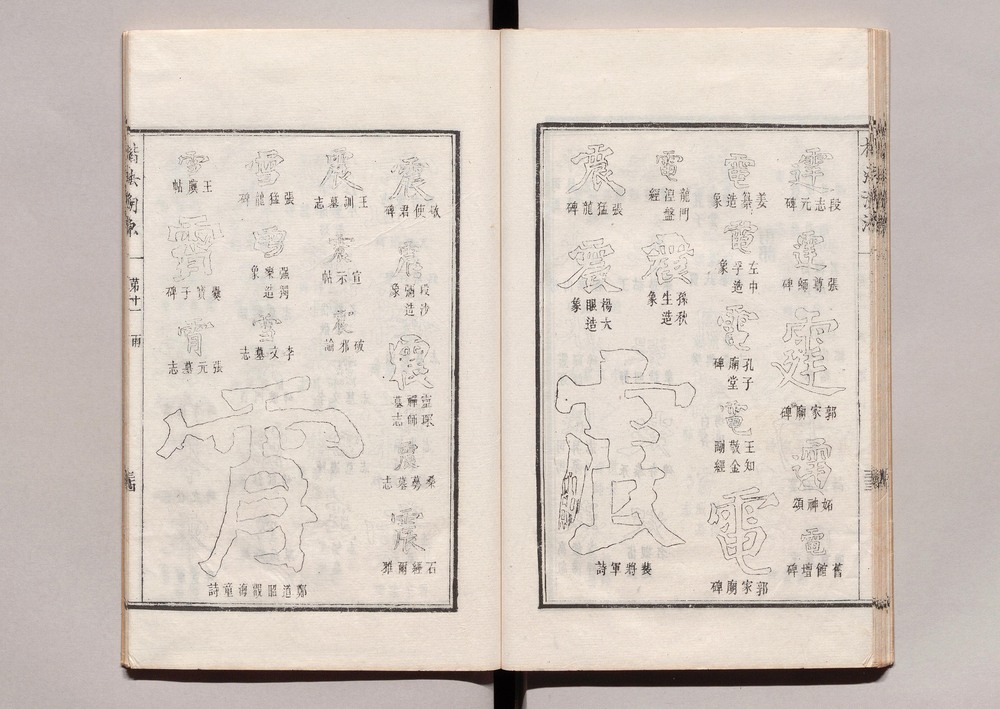 霆
段志元碑
霆
張尊師碑
霆
郭家廟碑
電
妬神頌
電
舊館壇碑
電
姜纂造象
電
左中孚造象
電
孔子廟堂碑
電
王知敬金剛經
電
郭家廟碑
電
龍門涅盤經
震
孫秋生造象
震
張猛龍碑
震
楊大眼造象
震
裴將軍詩
震
敬使君碑
震
段沙彌造象
震
靈琛禪師墓志
震
桑萼墓志
震
石經爾雅
震
王訓墓志
震
宣示帖
震
破邪論
雪
張猛龍碑
雪
强獨樂造象
雪
李文墓志
雪
王廙帖
霄
爨寶子碑
霄
張元墓志
霄
鄭道昭觀海童詩
楷法溯源
第十一 雨